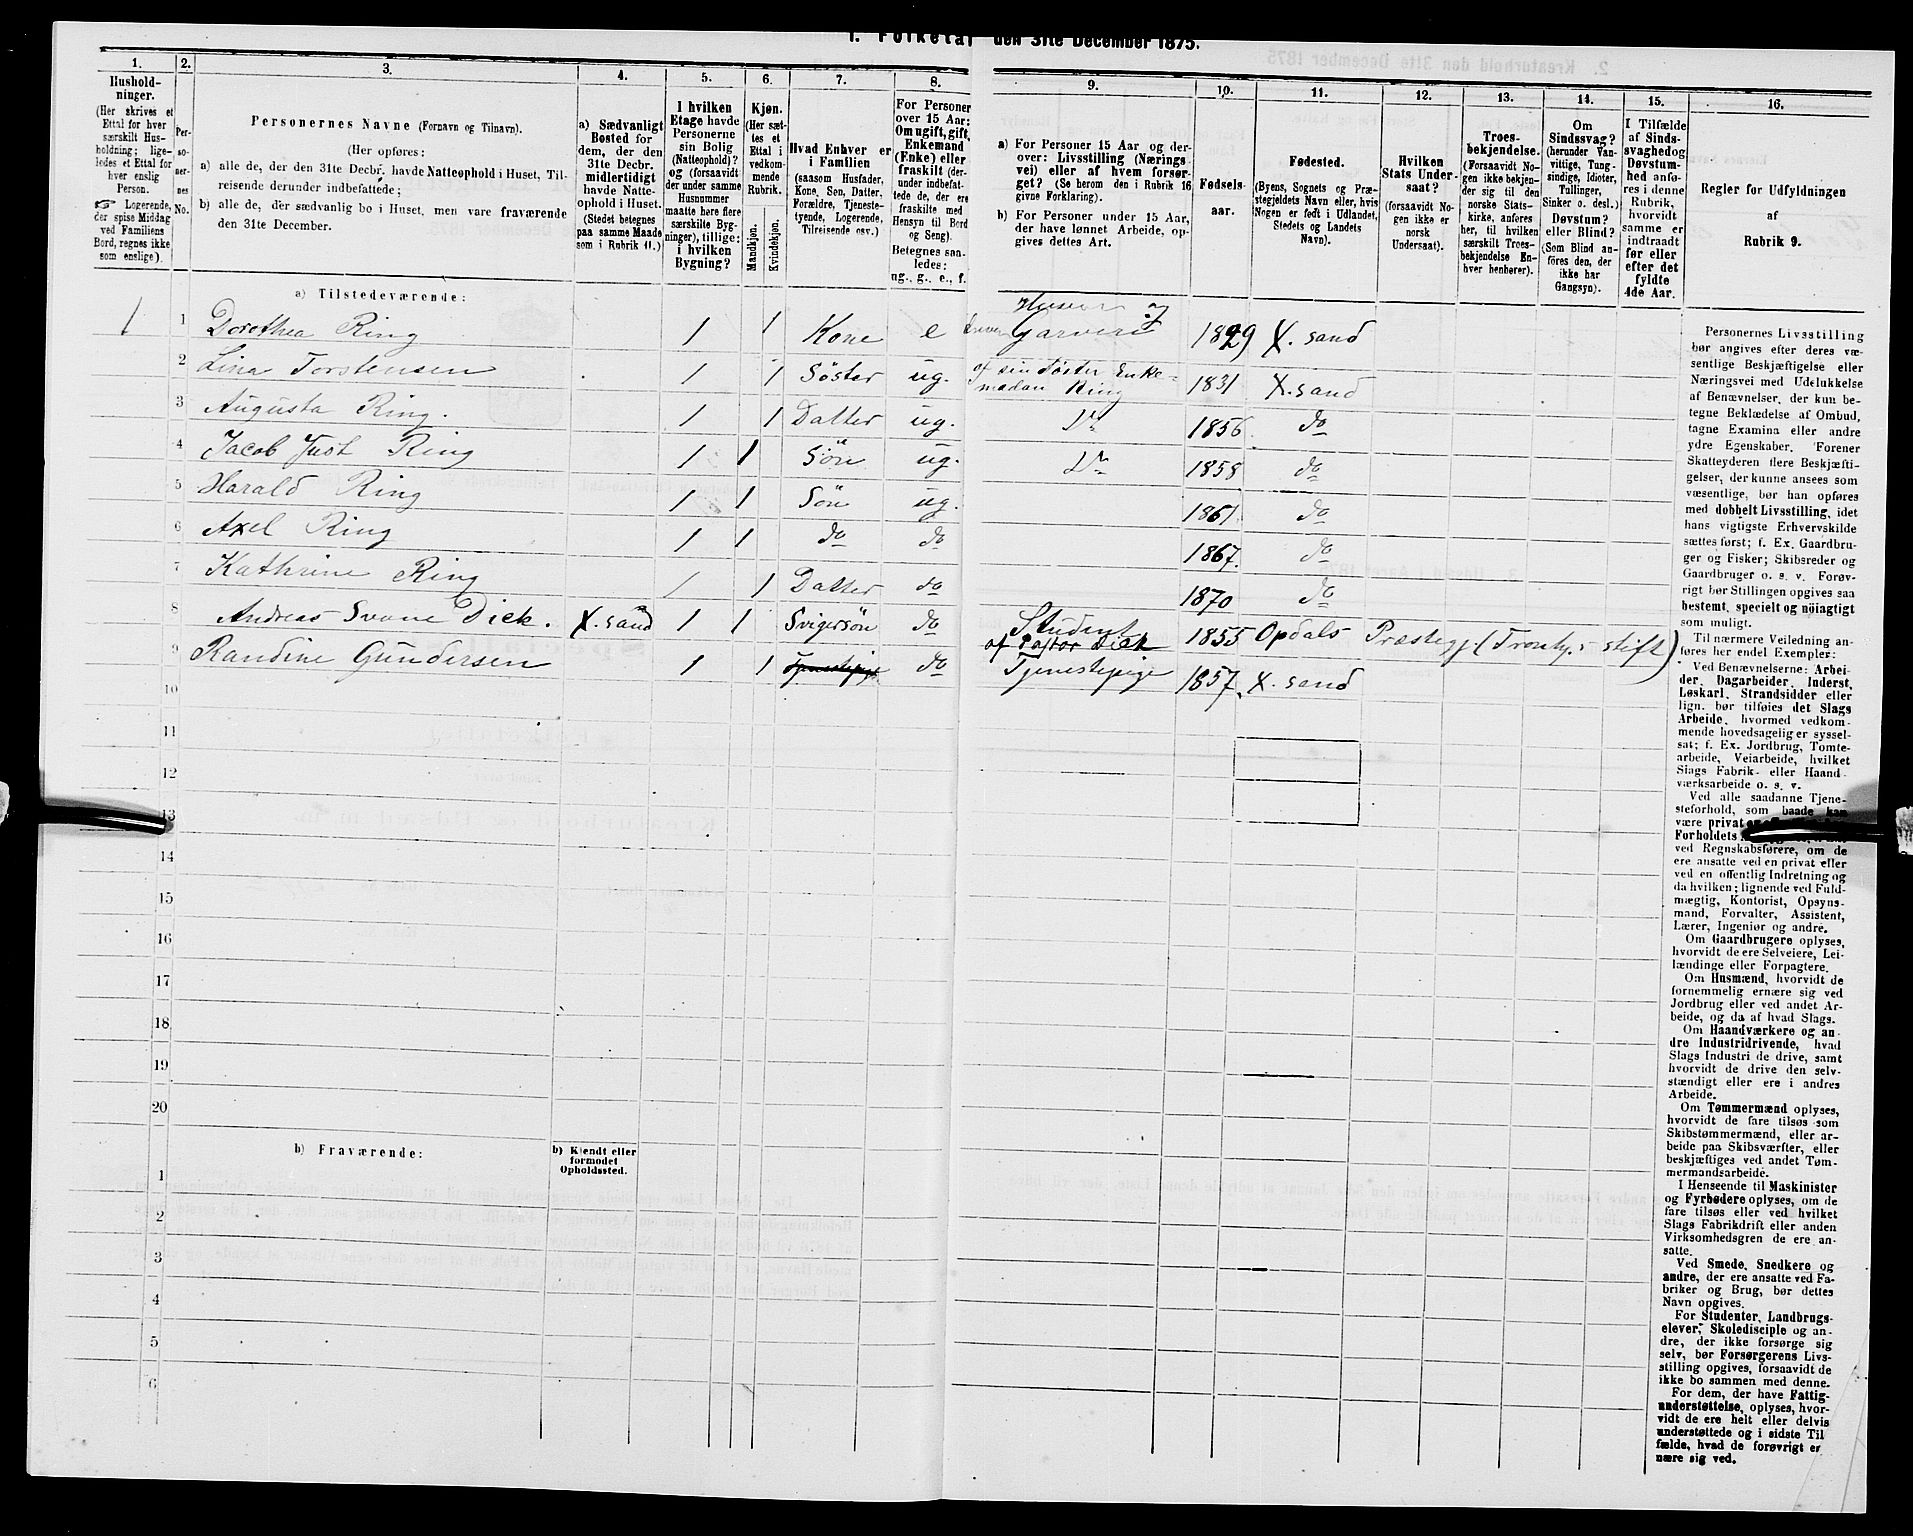 1. Folketal den 31te December 1875.
1. 2. 3. 4. 5. 6. 7. 8. 9. 10. 11. 12. 13. 14. 15. 16.
Husholdninger.
(Her skrives et
Ettal for hver
særskilt Husholdning;
ligeledes et Ettal for
hver enslig
Person.
☞ Logerende,
der spise Middag
ved Familiens
Bord, regnes ikke
som enslige).
Personernes No.
Personernes Navne (Fornavn og Tilnavn).
(Her opføres:
a) alle de, der den 31te Decbr. havde Natteophold i Huset, Tilreisende derunder indbefattede;
b) alle de, der sædvanlig bo i Huset, men vare fraværende
den 31te December.
a) Sædvanligt
Bosted for
dem, der den
31te Decbr.
midlertidigt
havde Natteophold i Huset.
(Stedet betegnes
paa samme Maade
som i Rubrik 11.)
I hvilken
Etage havde
Personerne
sin Bolig
(Natteophold)?
og (forsaavidt
der under samme
Husnummer
maatte høre flere
særskilte Bygninger), tillige:
i hvilken
Bygning?
Kjøn.
(Her sættes et
Ettal i
vedkommende
Rubrik.
Mandkjøn.
Kvindekjøn.
Hvad Enhver er
i Familien
(saasom Husfader,
Kone, Søn, Datter,
Forældre, Tjenestetyende, Logerende,
Tilreisende osv.)
For Personer
over 15 Aar:
Om ugift, gift,
Enkemand
(Enke) eller
fraskilt (derunder indbefattede de, der ere
fraskilte med
Hensyn til Bord
og Seng).
Betegnes saaledes:
ug., g., e., f.
a) For Personer 15 Aar og derover: Livsstilling (Næringsvei) eller af hvem forsørget? (Se herom den i Rubrik 16
givne Forklaring).
b) For Personer under 15 Aar,
der have lønnet Arbeide, opgives dettes Art.
Fødselsaar.
Fødested.
(Byens, Sognets og Præstegjeldets Navn eller, hvis
Nogen er født i Udlandet,
Stedets og Landets
Navn).
Hvilken
Stats Undersaat?
(forsaavidt Nogen ikke er
norsk
Undersaat).
Troesbekjendelse.
(Forsaavidt Nogen ikke bekjender sig til den
norske Statskirke, anføres
her, til hvilken
særskilt Troesbekjendelse Enhver henhører).
Om
Sindssvag?
(herunder Vanvittige, Tungsindige, Idioter,
Tullinger,
Sinker o. desl.)
Døvstum?
eller Blind?
(Som Blind anføres den, der
ikke har
Gangsyn).
I Tilfælde
af Sindssvaghed og
Døvstumhed anføres i denne
Rubrik,
hvorvidt
samme er
indtraadt
før eller
efter det
fyldte
4de Aar.
Regler for Udfyldningen
af
Rubrik 9.
a) Tilstedeværende:
1 1 Dorothea Ring 1 1 Kone e driver Garveri 1829 X. sand
2 Lina Torstensen 1 1 Søster ug. af sin Søster Enkemadan Ring 1831 X. sand
3 Augusta Ring. 1 1 Datter ug. Do 1856 do
4 Jacob Just Ring 1 1 Søn ug. Do 1858 do
5 Harald Ring 1 1 Søn ug. 1861 do
6 Axel Ring 1 1 do do 1867. do
7 Kathrine Ring 1 1 Datter do 1870 do
8 Andreas Svane Dick. X. sand 1 1 Svigersøn do Student af Pastor Dick 1855 Opdals Præstegj. (Trondhj. stift)
9 Randine Gundersen 1 1 Tjenestepige do Tjenestepige 1857. X. sand
10
11
12
13
14
15
16
17
18
19
20
b) Fraværende:
b) Kjendt eller
formodet
Opholdssted.
1
2
3
4
5
6
Personernes Livsstilling
bør angives efter deres væsentlige Beskjæftigelse eller
Næringsvei med Udelukkelse
af Benævnelser, der kun betegne Beklædelse af Ombud,
tagne Examina eller andre
ydre Egenskaber. Forener
Skatteyderen flere Beskjæftigelser, der kunne ansees som
væsentlige, bør han opføres
med dobbelt Livsstilling, idet
hans vigtigste Erhvervskilde
sættes først; f. Ex. Gaardbruger og Fisker; Skibsreder og
Gaardbruger o. s. v. Forøvrigt bør Stillingen opgives saa
bestemt, specielt og nøiagtigt
som muligt.
Til nærmere Veiledning anføres her endel Exempler:
Ved Benævnelserne: Arbeider, Dagarbeider, Inderst,
Løskarl, Strandsidder eller
lign. bør tilføies det Slags
Arbeide, hvormed vedkommende hovedsagelig er sysselsat; f. Ex. Jordbrug, Tomtearbeide, Veiarbeide, hvilket
Slags Fabrik- eller Haandværksarbeide o. s. v.
Ved alle saadanne Tjenesteforhold, som baade kan
være privat
Forholdets
ved Regnskabsførere, om de
ere ansatte ved en privat eller
ved en offentlig Indretning og
da hvilken; lignende ved Fuldmægtig, Kontorist, Opsynsmand, Forvalter, Assistent,
Lærer, Ingeniør og andre.
Om Gaardbrugere oplyses,
hvorvidt de ere Selveiere, Leilændinge eller Forpagtere.
Om Husmænd, hvorvidt de
fornemmelig ernære sig ved
Jordbrug eller ved andet Arbeide, og da af hvad Slags.
Om Haandværkere og andre Industridrivende, hvad
Slags Industri de drive, samt
hvorvidt de drive den selvstændigt eller ere i andres
Arbeide.
Om Tømmermænd oplyses,
hvorvidt de fare tilsøs som
Skibstømmermænd, eller arbeide paa Skibsværfter, eller
beskjæftiges ved andet Tømmermandsarbeide.
I Henseende til Maskinister
og Fyrbødere oplyses, om de
fare tilsøs eller ved hvilket
Slags Fabrikdrift eller anden
Virksomhedsgren de ere ansatte.
Ved Smede, Snedkere og
andre, der ere ansatte ved Fabriker og Brug, bør dettes
Navn opgives.
For Studenter, Landbrugselever, Skoledisciple og andre, der ikke forsørge sig
selv, bør Forsørgerens Livsstilling opgives, forsaavidt de
ikke bo sammen med denne.
For dem, der have Fattigunderstøttelse, oplyses, hvorvidt de ere helt eller delvis
understøttede og i sidste Tilfælde, hvad de forøvrigt ernære sig ved.